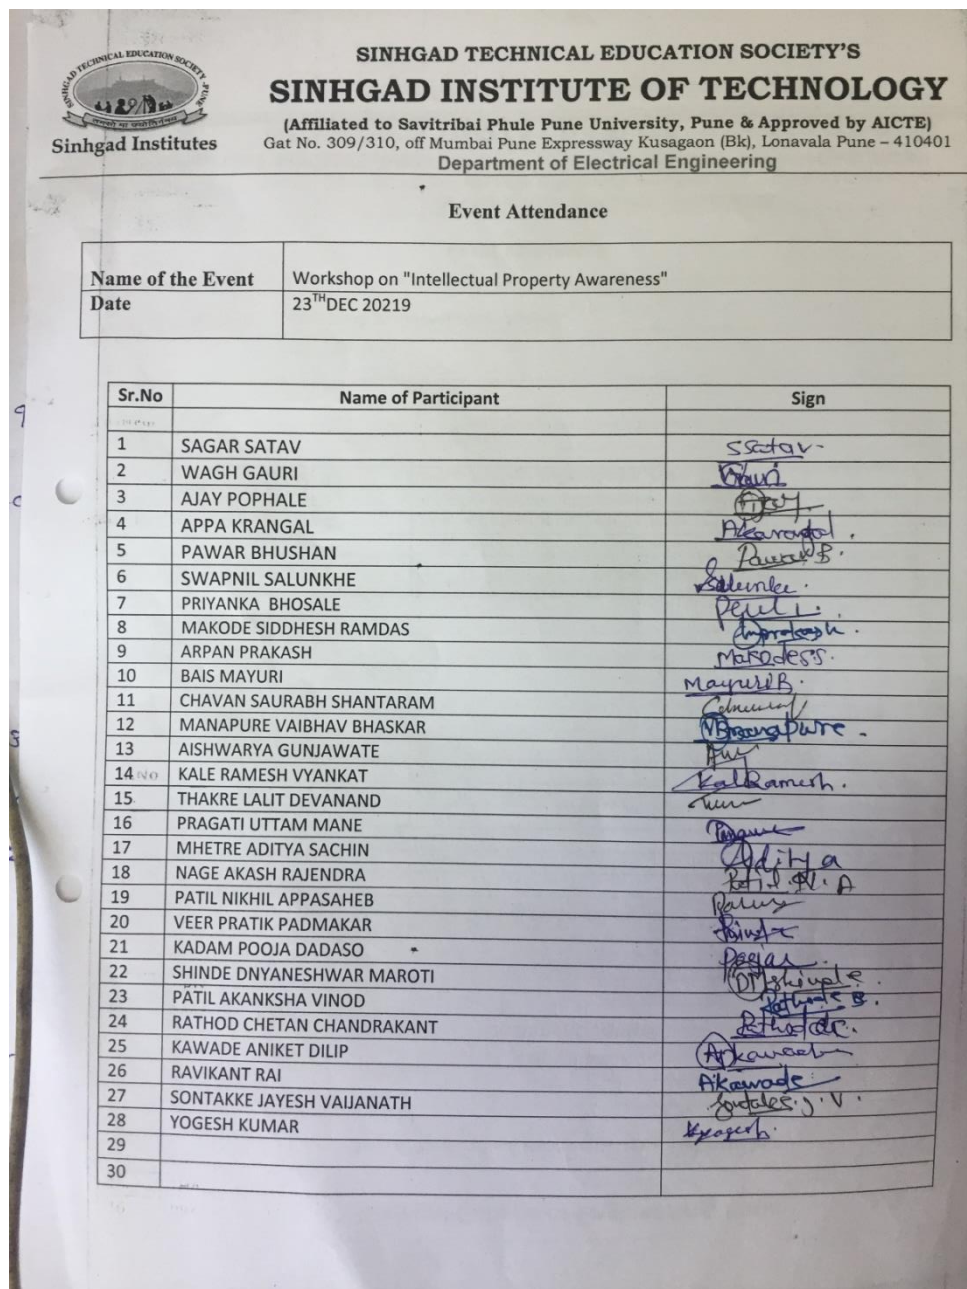 TECHNICAL EDUCATION SOCIETY
Sinhgad Institutes
SINHGAD TECHNICAL EDUCATION SOCIETY'S
SINHGAD INSTITUTE OF TECHNOLOGY
(Affiliated to Savitribai Phule Pune University, Pune & Approved by AICTE)
Gat No. 309/310, off Mumbai Pune Expressway Kusagaon (Bk), Lonavala Pune – 410401
Department of Electrical Engineering
Event Attendance
Name of the Event Workshop on "Intellectual Property Awareness"
Date 23THDEC 20219
Sr.No Name of Participant Sign
1 SAGAR SATAV SSatav
2 WAGH GAURI Gauri
3 AJAY POPHALE
4 APPA KRANGAL
5 PAWAR BHUSHAN Pawar B.
6 SWAPNIL SALUNKHE
7 PRIYANKA BHOSALE
8 MAKODE SIDDHESH RAMDAS
9 ARPAN PRAKASH Makode S.S.
10 BAIS MAYURI Mayuri B.
11 CHAVAN SAURABH SHANTARAM
12 MANAPURE VAIBHAV BHASKAR
13 AISHWARYA GUNJAWATE
14 KALE RAMESH VYANKAT Kale Ramesh.
15 THAKRE LALIT DEVANAND
16 PRAGATI UTTAM MANE
17 MHETRE ADITYA SACHIN Aditya
18 NAGE AKASH RAJENDRA Patil N. A
19 PATIL NIKHIL APPASAHEB
20 VEER PRATIK PADMAKAR
21 KADAM POOJA DADASO
22 SHINDE DNYANESHWAR MAROTI
23 PATIL AKANKSHA VINOD
24 RATHOD CHETAN CHANDRAKANT
25 KAWADE ANIKET DILIP
26 RAVIKANT RAI AKawade
27 SONTAKKE JAYESH VAIJANATH
28 YOGESH KUMAR
29
30